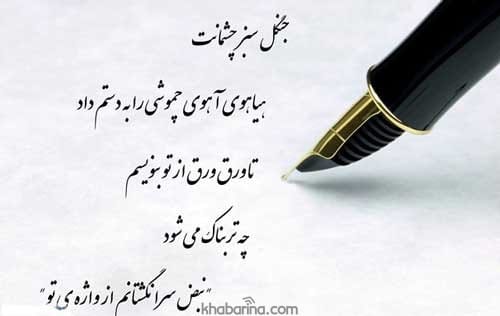 جنگل سبز چشمانت
هیاهوی آهوی چموشی را به دستم داد
تا ورق ورق از تو بنویسم
چه تربناک می شود
"نبض سرانگشتانم از واژه ی تو"
khabarina.com